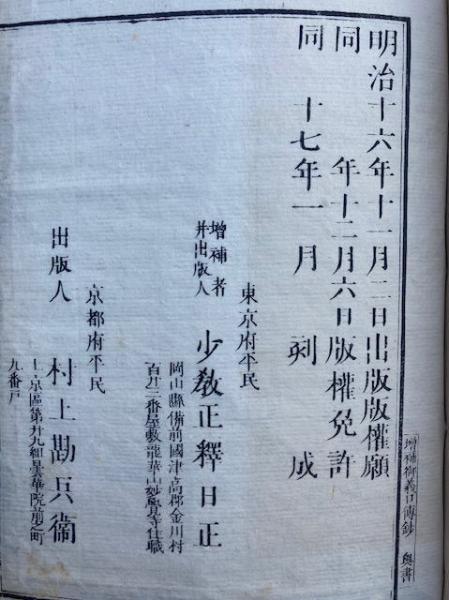 明治十六年十一月二日出版版權願
同 年十二月六日版權免許
同 十七年一月 刻成
東京府平民
增補者
并出版人
少敎正釋日正
岡山縣備前國津高郡金川村
百廿三番屋敷龍華山妙覺寺住職
京都府平民
出版人
村上勘兵衞
上京區第廿九組曇華院前之町
九番戸
增補御義口傳鈔 奥書